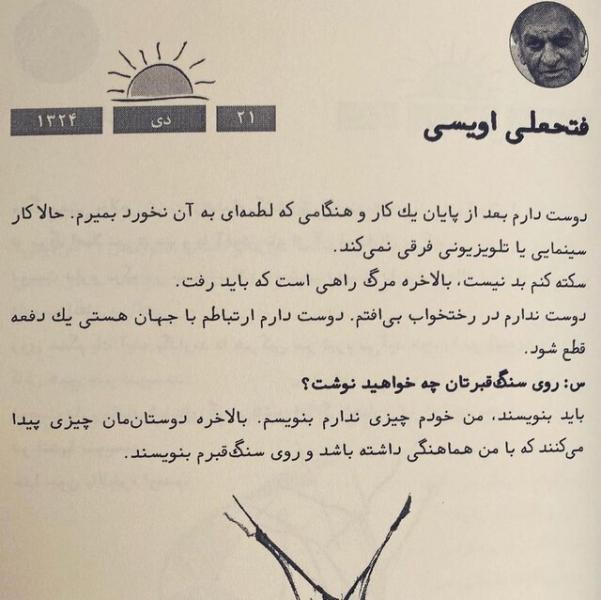 فتحعلی اویسی
۲۱ دی ۱۳۲۴
دوست دارم بعد از پایان یك کار و هنگامی که لطمه‌ای به آن نخورد بمیرم. حالا کار
سینمایی یا تلویزیونی فرقی نمی‌کند.
سکته کنم بد نیست، بالاخره مرگ راهی است که باید رفت.
دوست ندارم در رختخواب بی‌افتم. دوست دارم ارتباطم با جهان هستی یك دفعه
قطع شود.
س: روی سنگ‌قبرتان چه خواهید نوشت؟
باید بنویسند، من خودم چیزی ندارم بنویسم. بالاخره دوستان‌مان چیزی پیدا
می‌کنند که با من هماهنگی داشته باشد و روی سنگ‌قبرم بنویسند.